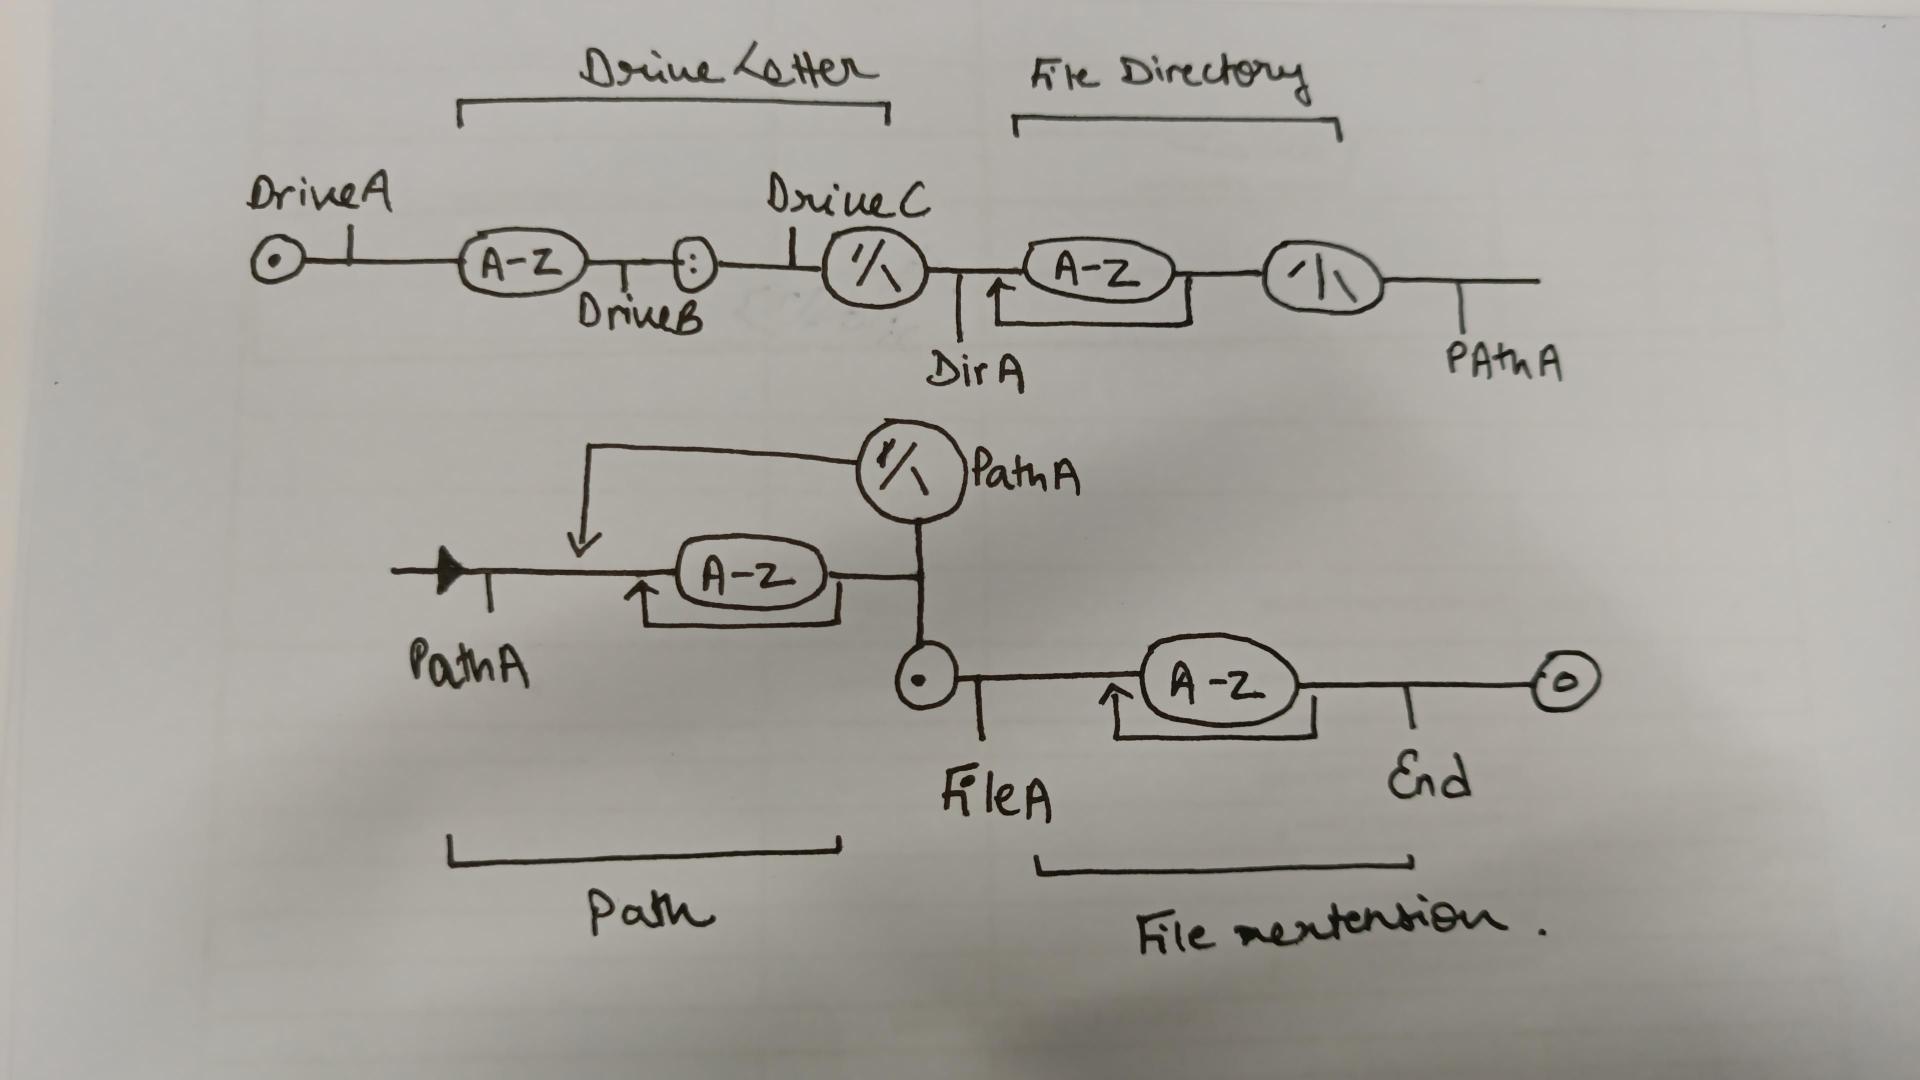 Drive Letter File Directory
DriveA DriveC
A-Z : "/\ A-Z '/\
DriveB
DirA PAthA
"/\ PathA
A-Z
PathA
. A-Z
FileA End
Path
File